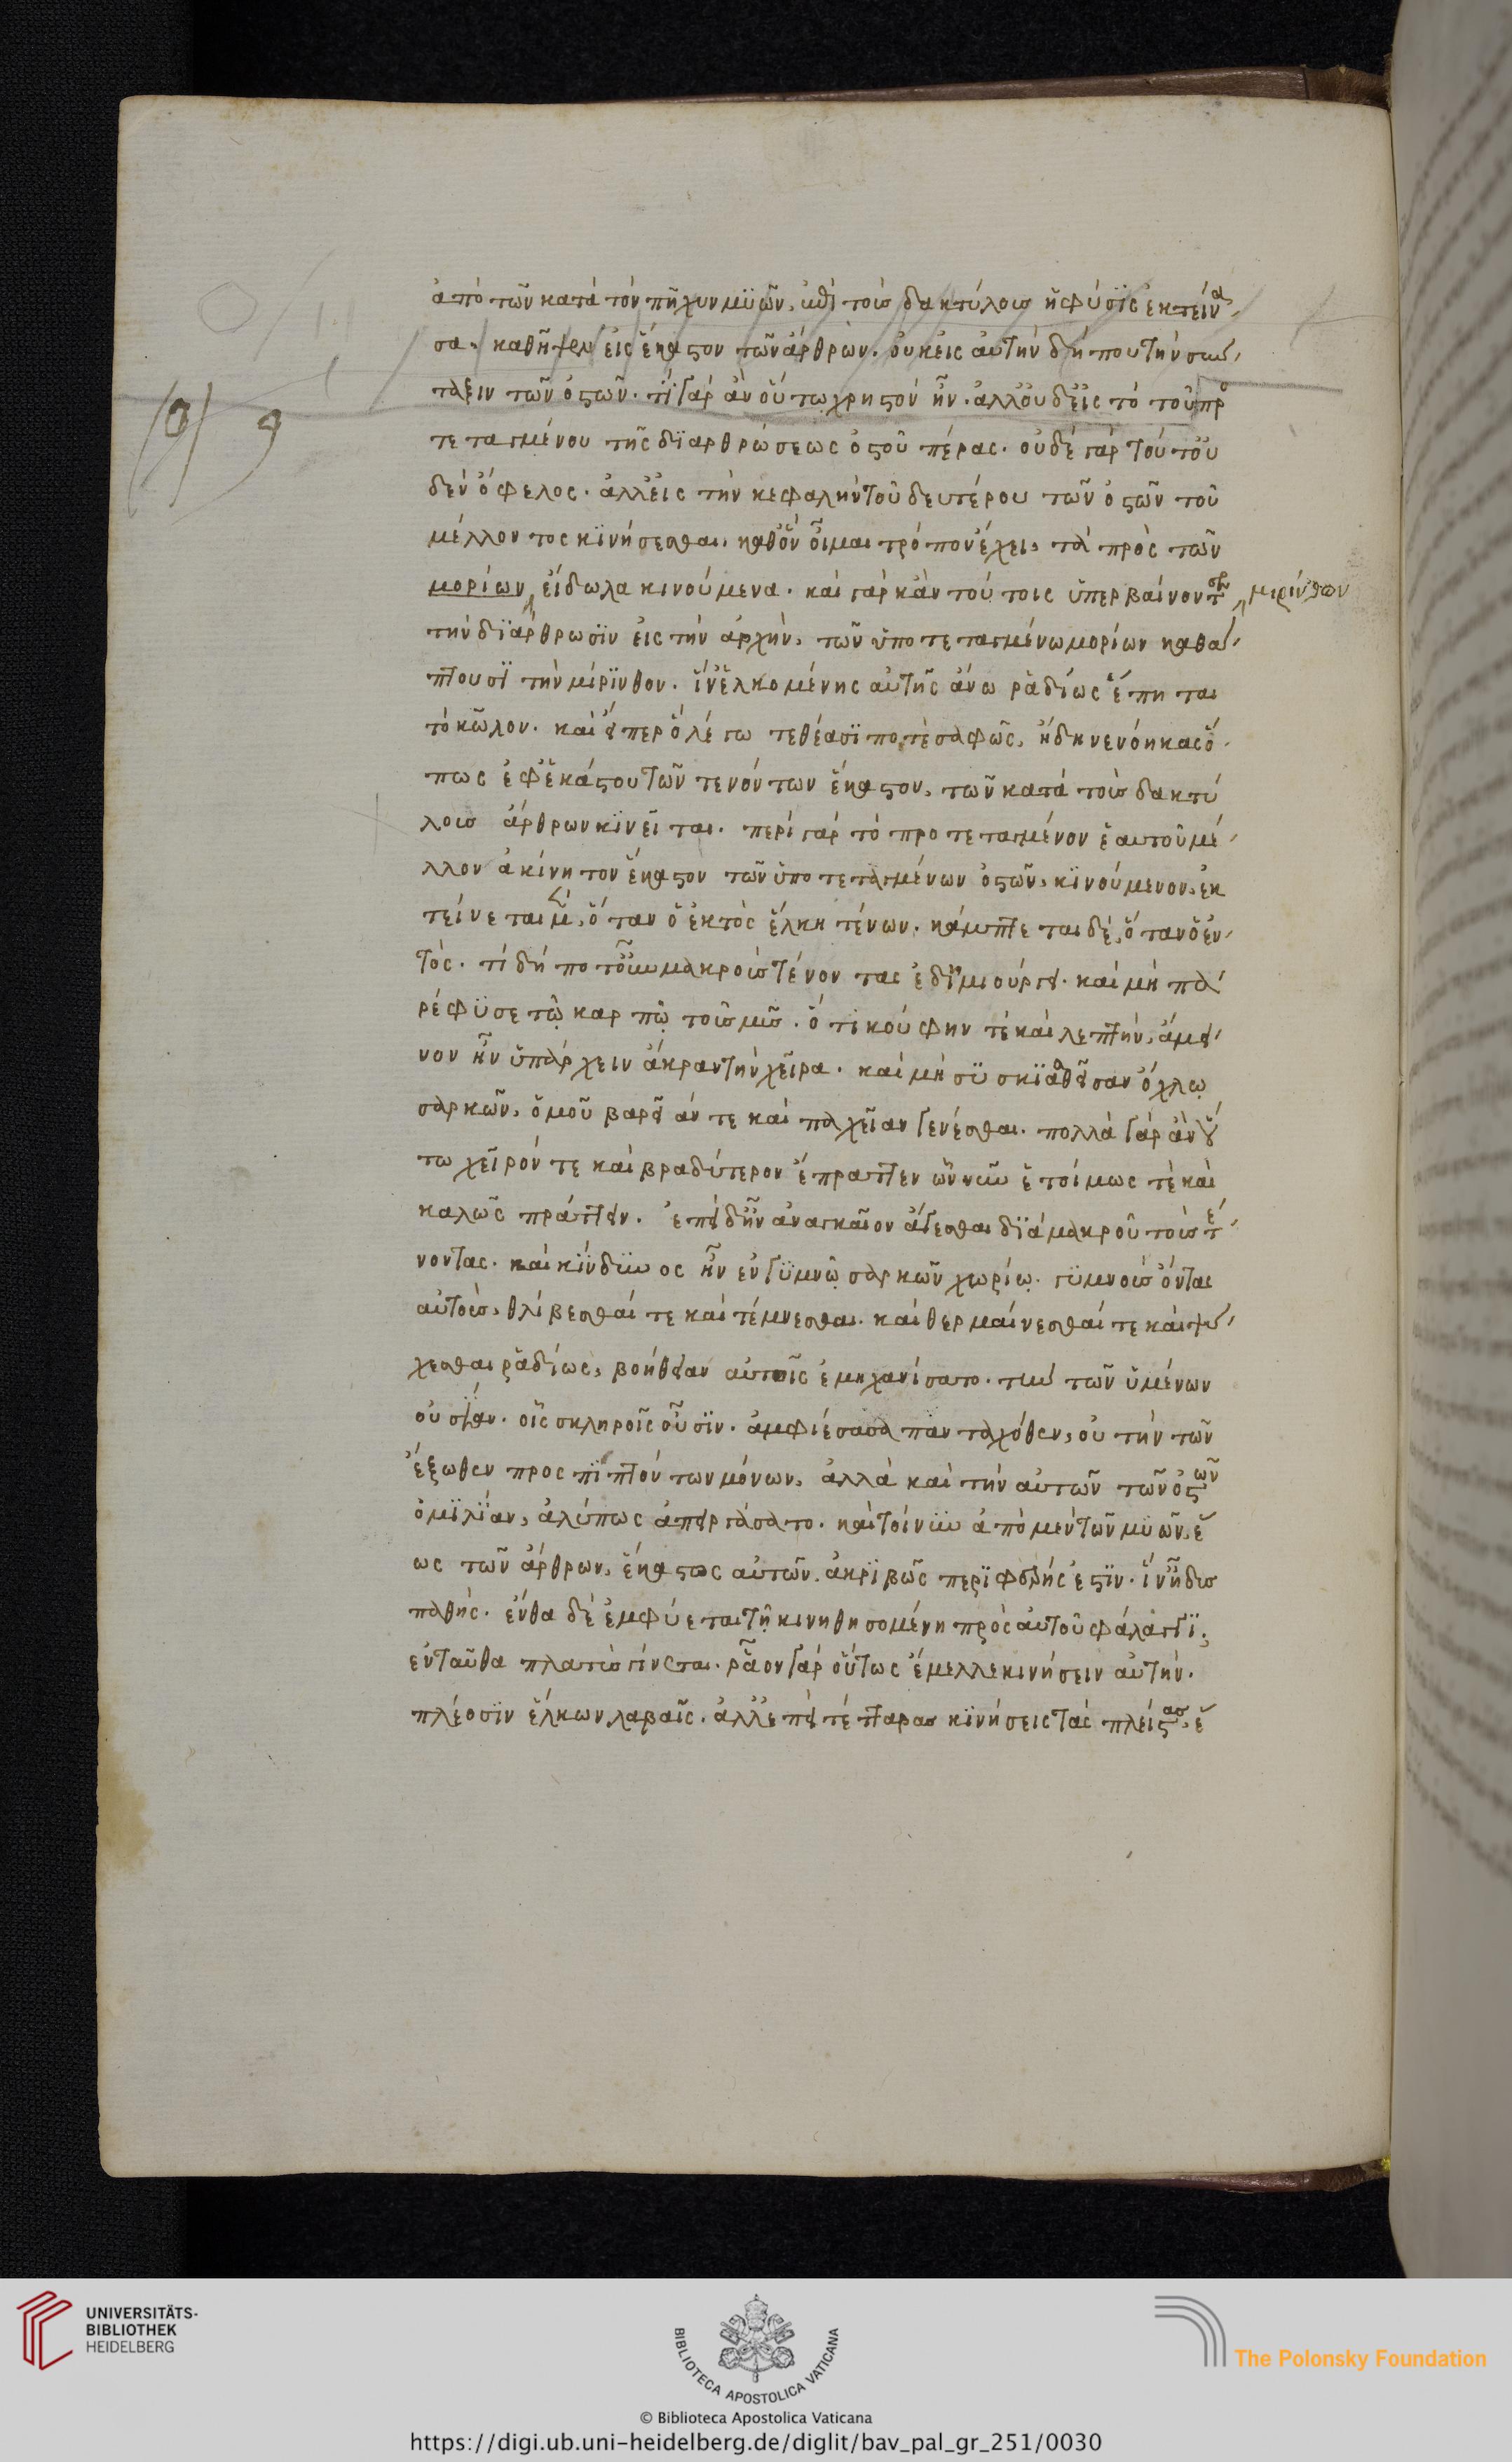 ἀπὸ τῶν κατὰ τὸν πῆχυν μυῶν, ἐπὶ τοὺς δακτύλους ἡ φύσις ἐκτείνα
σα. καθῆψεν εἰς ἕκαστον τῶν ἄρθρων. οὐκ εἰς αὐτὴν δή που τὴν σύν
ταξιν τῶν ὀστῶν. τί γὰρ ἂν οὕτω χρηστὸν ἦν. ἀλλ' οὐδ' εἰς τὸ τοῦ προ
τεταγμένου τῆς διαρθρώσεως ὀστοῦ πέρας. οὐδὲ γὰρ τούτου
δὲν ὄφελος. ἀλλ' εἰς τὴν κεφαλὴν τοῦ δευτέρου τῶν ὀστῶν τοῦ
μέλλοντος κινήσεσθαι. καθ' ὃν οἶμαι τρόπον ἔχει, τὰ πρὸς τῶν
μορίων εἴδωλα κινούμενα. καὶ γὰρ κἀν τούτοις ὑπερβαίνοντες μιρίνθων
τὴν διάρθρωσιν εἰς τὴν ἀρχήν, τῶν ὑποτεταγμένω μορίων καθά
πτουσι τὴν μίρινθον. ἵν' ἑλκομένης αὐτῆς ἄνω ῥᾳδίως ἕπηται
τὸ κῶλον. καὶ εἴπερ ὃ λέγω τεθέασαί ποτε σαφῶς, ἤδη νενόηκας ὅ
πως ἐφ' ἑκάστου τῶν τενόντων ἕκαστον, τῶν κατὰ τοὺς δακτύ
λους ἄρθρων κινεῖται. περὶ γὰρ τὸ προτεταγμένον ἑαυτοῦ μέ
λλον ἀκίνητον ἕκαστον τῶν ὑποτεταγμένων ὀστῶν, κινούμενον, ἐκ
τείνεται μὲν, ὅταν ὁ ἐκτὸς ἕλκῃ τένων. κάμπτεται δὲ, ὅταν ὁ ἐν
τός. τί δή ποτ' οὖν μακροὺς τένοντας ἐδημιούργει. καὶ μὴ πα
ρέφυσε τῷ καρπῷ τοὺς μῦς. ὅτι κούφην τὲ καὶ λεπτὴν, ἄμει
νον ἦν ὑπάρχειν ἄκραν τὴν χεῖρα. καὶ μὴ συσκιασθεῖσαν ὄχλῳ
σαρκῶν, ὁμοῦ βαρεῖάν τε καὶ παχεῖαν γενέσθαι. πολλὰ γὰρ ἂν οὕ
τω χεῖρόν τε καὶ βραδύτερον ἔπραττεν ὧν νῦν ἑτοίμως τὲ καὶ
καλῶς πράττειν. ἐπεὶ δ' ἦν ἀναγκαῖον ἄγεσθαι διὰ μακροῦ τοὺς τέ
νοντας. καὶ κίνδυνος ἦν ἐν γυμνῷ σαρκῶν χωρίῳ. γυμνοὺς ὄντας
αὐτοὺς, θλίβεσθαί τε καὶ τέμνεσθαι. καὶ θερμαίνεσθαί τε καὶ ψύ
χεσθαι ῥᾳδίως, βοήθειαν αὐτοῖς ἐμηχανήσατο. τὴν τῶν ὑμένων
οὐσίαν. οἷς σκληροῖς οὖσιν. ἀμφιέσασα πανταχόθεν, οὐ τὴν τῶν
ἔξωθεν προσπιπτόντων μόνων, ἀλλὰ καὶ τὴν αὐτῶν τῶν ὀστῶν
ὁμιλίαν, ἀλύπως ἀπειργάσατο. καὶ τοίνυν ἀπὸ μὲν τῶν μυῶν, ἕ
ως τῶν ἄρθρων, ἕκαστος αὐτῶν, ἀκριβῶς περιφερής ἐστιν. ἵν' ἦ δυσ
παθής. ἔνθα δὲ ἐμφύεται τῇ κινηθησομένῃ πρὸς αὐτοῦ φάλαγγι,
ἐνταῦθα πλατὺς γίνεται. ῥᾷον γὰρ οὕτως ἔμελλε κινήσειν αὐτήν.
πλέοσιν ἕλκων λαβαῖς. ἀλλ' ἐπεὶ τέτταρας κινήσεις τὰς πλείστας, ἕ
9
UNIVERSITÄTS-
BIBLIOTHEK
HEIDELBERG
BIBLIOTECA APOSTOLICA VATICANA
The Polonsky Foundation
© Biblioteca Apostolica Vaticana
https://digi.ub.uni-heidelberg.de/diglit/bav_pal_gr_251/0030